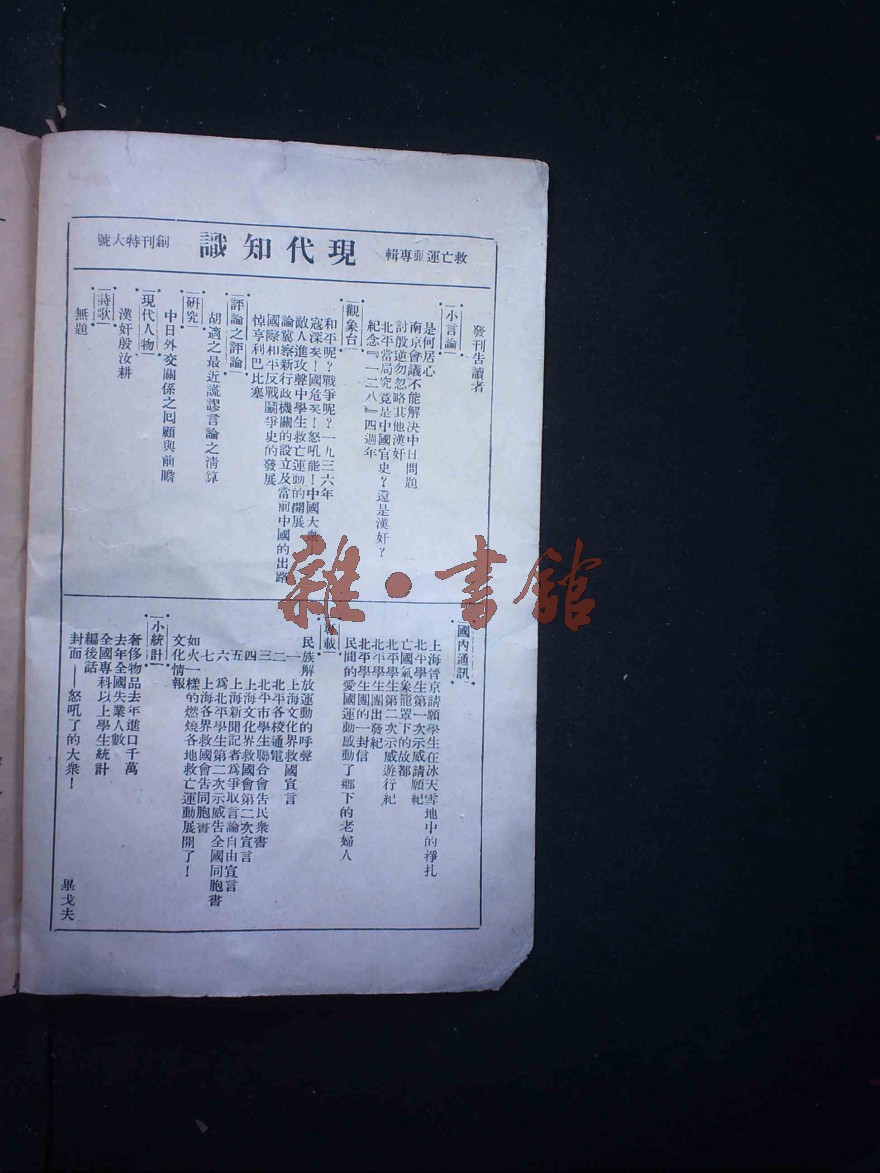 救亡運動專輯
現代知識
創刊特大號
發刊告讀者
小言論
是何居心
南京會議不能解決中日問題
討殷逆勿忽略其他漢奸
北平當局究竟是中國官吏？還是漢奸？
紀念『一二八』四週年
觀象台
和平呢？戰爭呢？一九三六年
寇深矣！國危矣！怒吼能！中國大衆
敵人進攻聲中學生救亡運動的開展
論冀察新行政機關的設立及當前中國的出路
國際和平反戰鬭爭史的發展
悼亨利巴比塞
評論之評論
胡適之最近謊謬言論之清算
研究
中日外交關係之囘顧與前瞻
現代人物
漢奸殷汝耕
詩歌
無題
國內通訊
上海晉京請願學生在冰天雪地中的掙扎
北平學生第一次示威請願紀
亡國氣象籠罩下的故都
北平學生第二次示威遊行紀
北平學生團出發紀
北平學生團的一封信
民間的愛國運動感動了鄉下的老婦人
專載
民族解放運動的呼聲
一 上海文化界救國宣言
二 北平各校通電
三 北平市學生聯合會告民衆書
四 上海文化界救國會第二次宣言
五 上海新聞記者爲爭取言論自由宣言
六 爲北平學生第二次示威告全國同胞書
七 上海各界救國會告同胞書
如火一樣的燃燒各地救亡運動展開了！
文化情報
小統計
奢侈物品去年進口千萬
去年全國失業人數
全國專科以上學生統計
編後話
封面——怒吼了的大衆！
畢戈夫
雜·書館